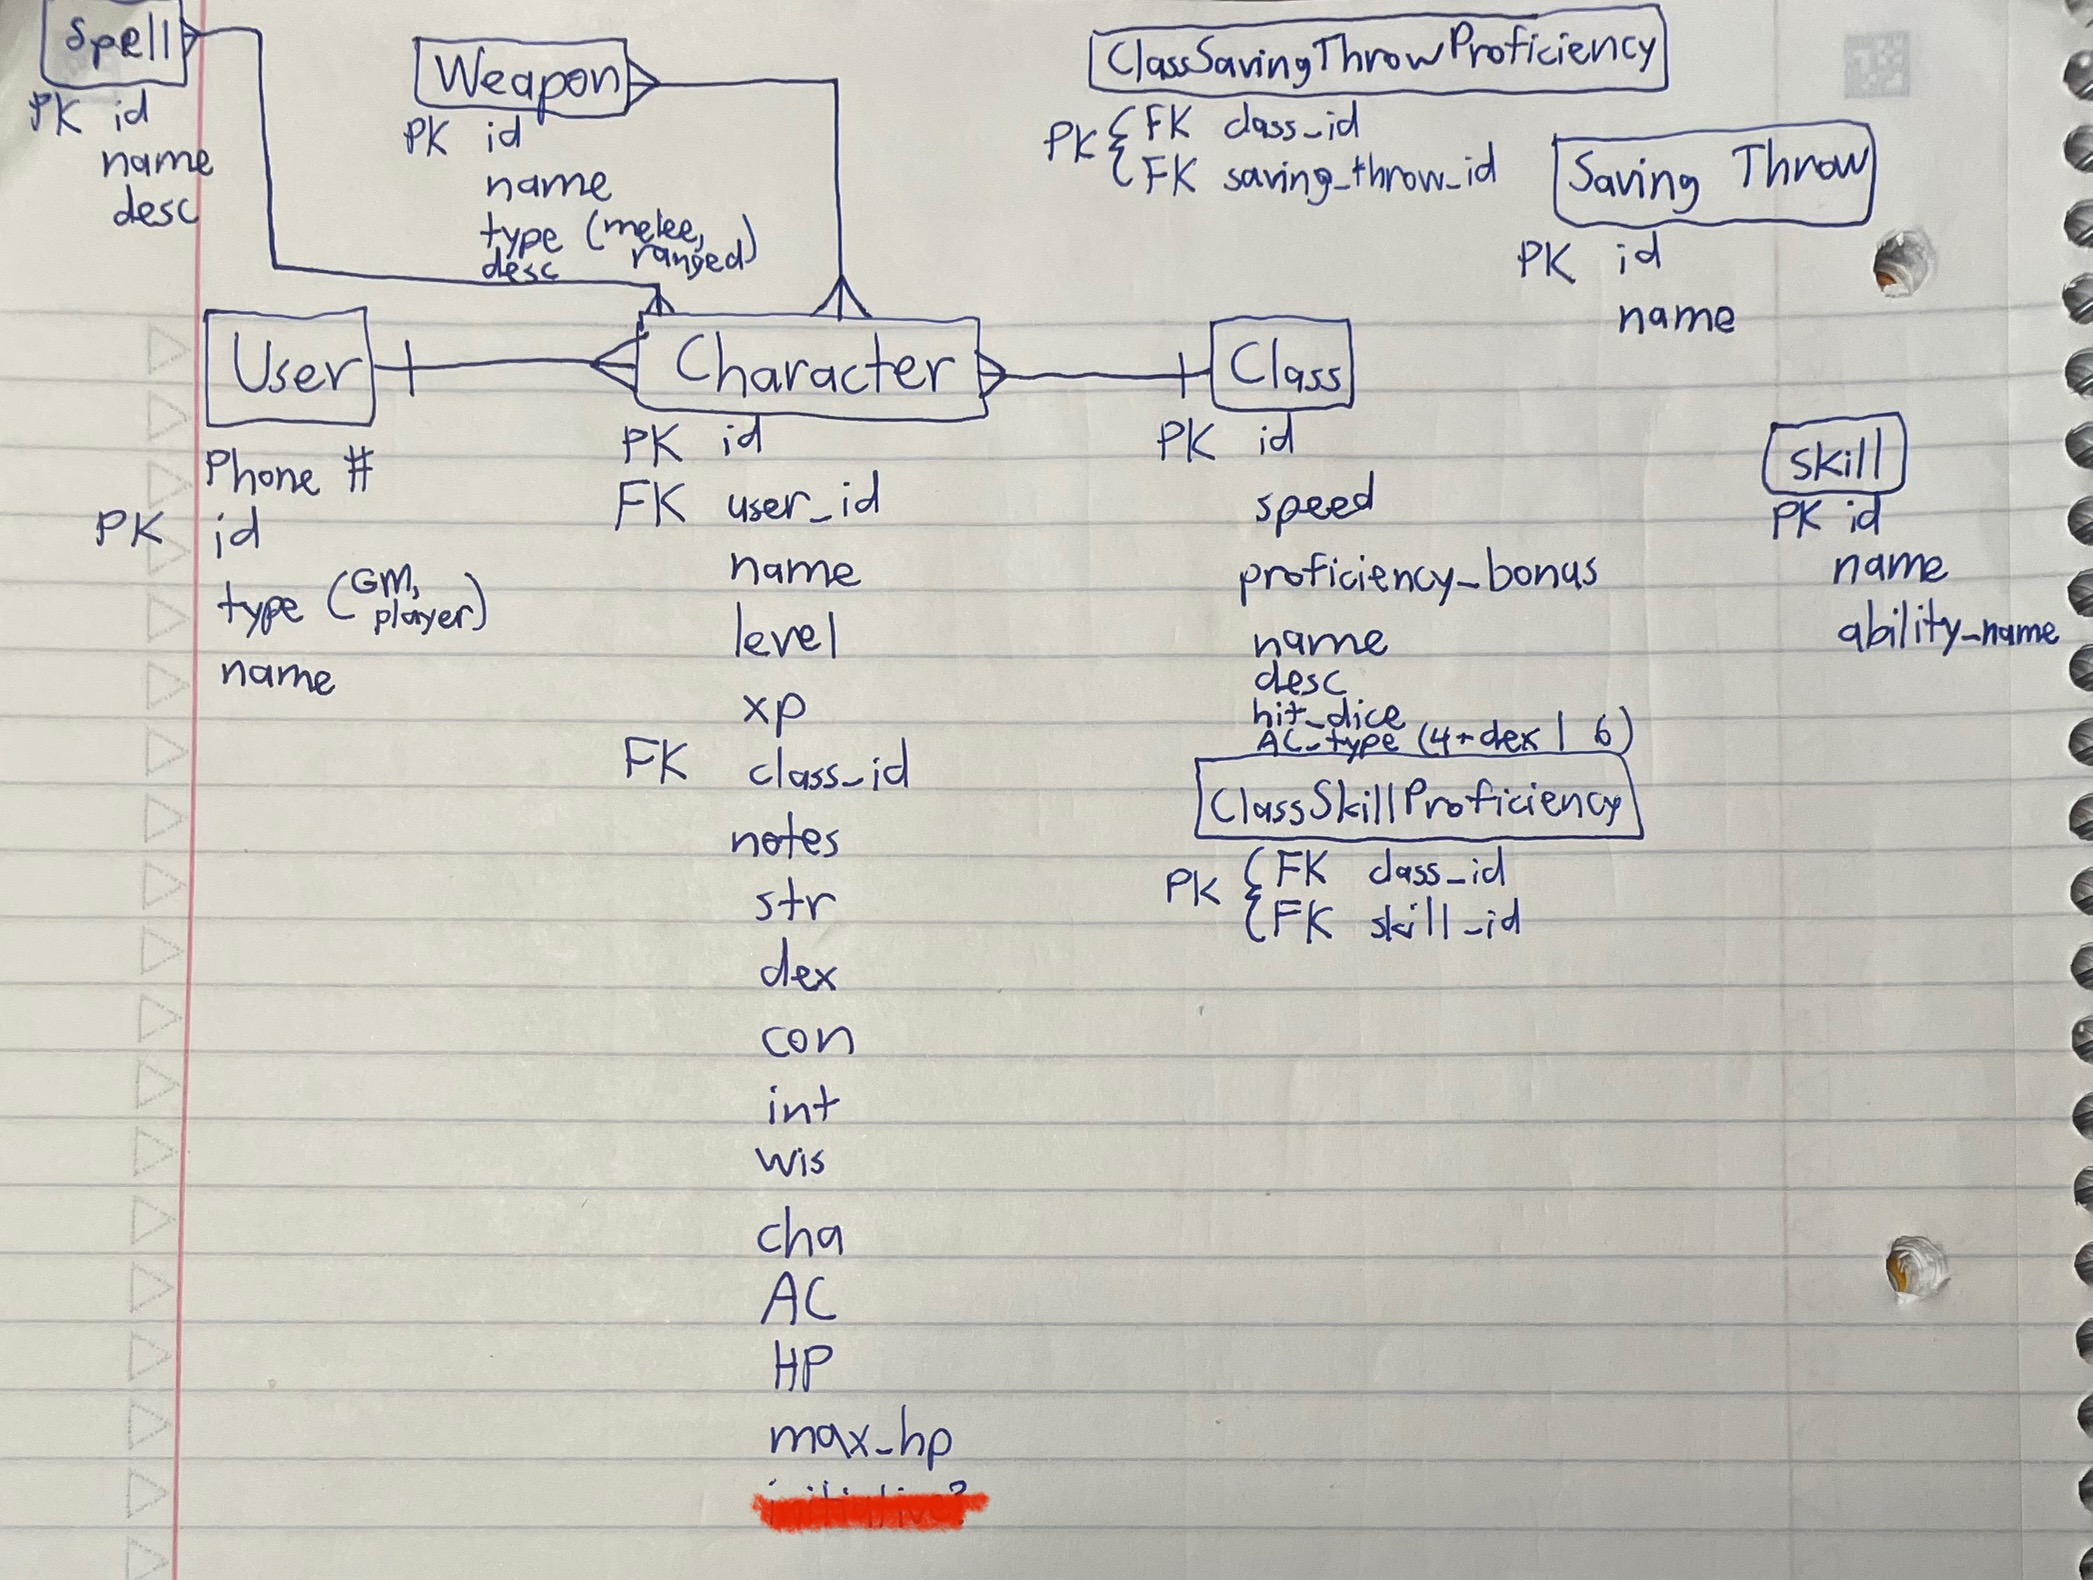 Spell
PK id
name
desc
Weapon
PK id
name
type (melee, ranged)
desc
ClassSavingThrowProficiency
PK { FK class_id
FK saving_throw_id
Saving Throw
PK id
name
User
Phone #
PK id
type (GM, player)
name
Character
PK id
FK user_id
name
level
xp
FK class_id
notes
str
dex
con
int
wis
cha
AC
HP
max_hp
Class
PK id
speed
proficiency_bonus
name
desc
hit_dice
AC_type (4+dex | 6)
ClassSkillProficiency
PK { FK class_id
FK skill_id
Skill
PK id
name
ability_name